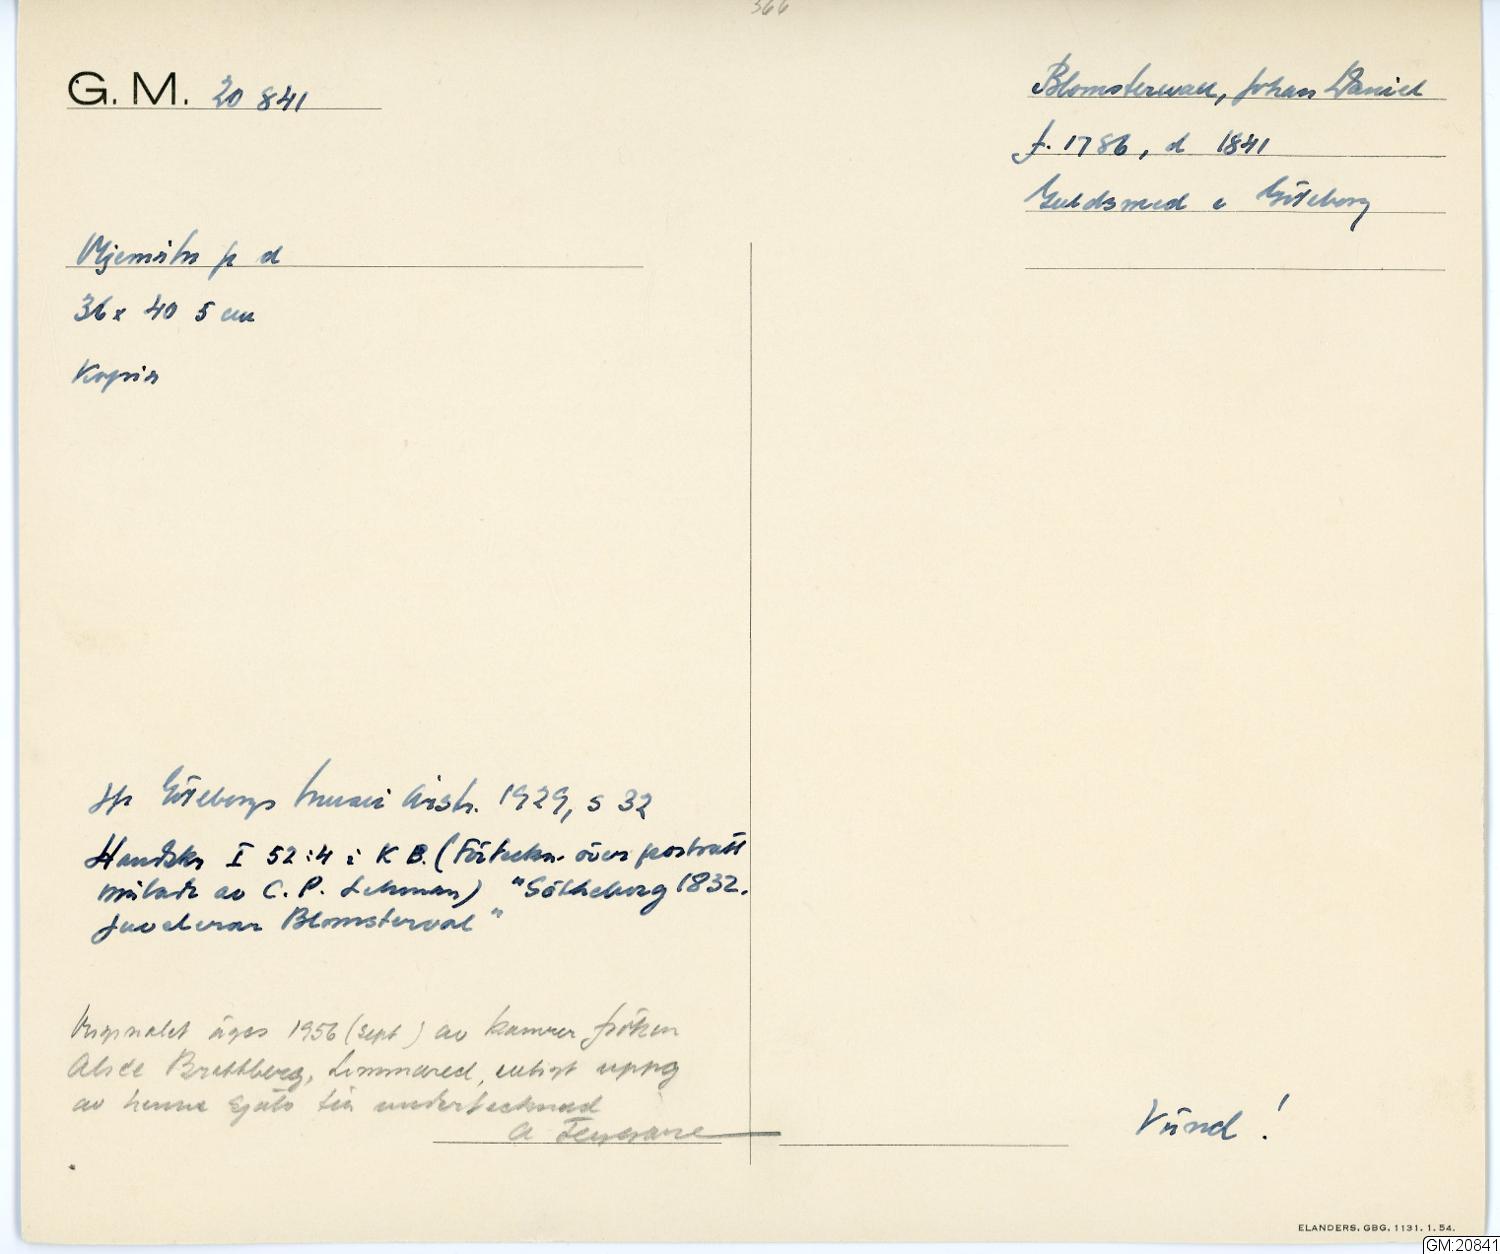 366
G. M. 20 841
Blomsterwall, Johan Daniel
f. 1786, d 1841
Guldsmed i Göteborg
Oljemåln p d
36 x 40 5 cm
Kopia
Jfr Göteborgs Musei Årstr. 1929, s 32
Handskr I 52:4 i K B. (Förteckn. över porträtt
målade av C. P. Lehman) "Götheborg 1832.
Juvelerar Blomsterval"
Originalet äges 1956 (sept) av kamrer fröken
Alice Brattberg, Limmared, enligt uppg
av henne själv till undertecknad
Vänd!
ELANDERS, GBG, 1131. 1. 54.
GM:20841